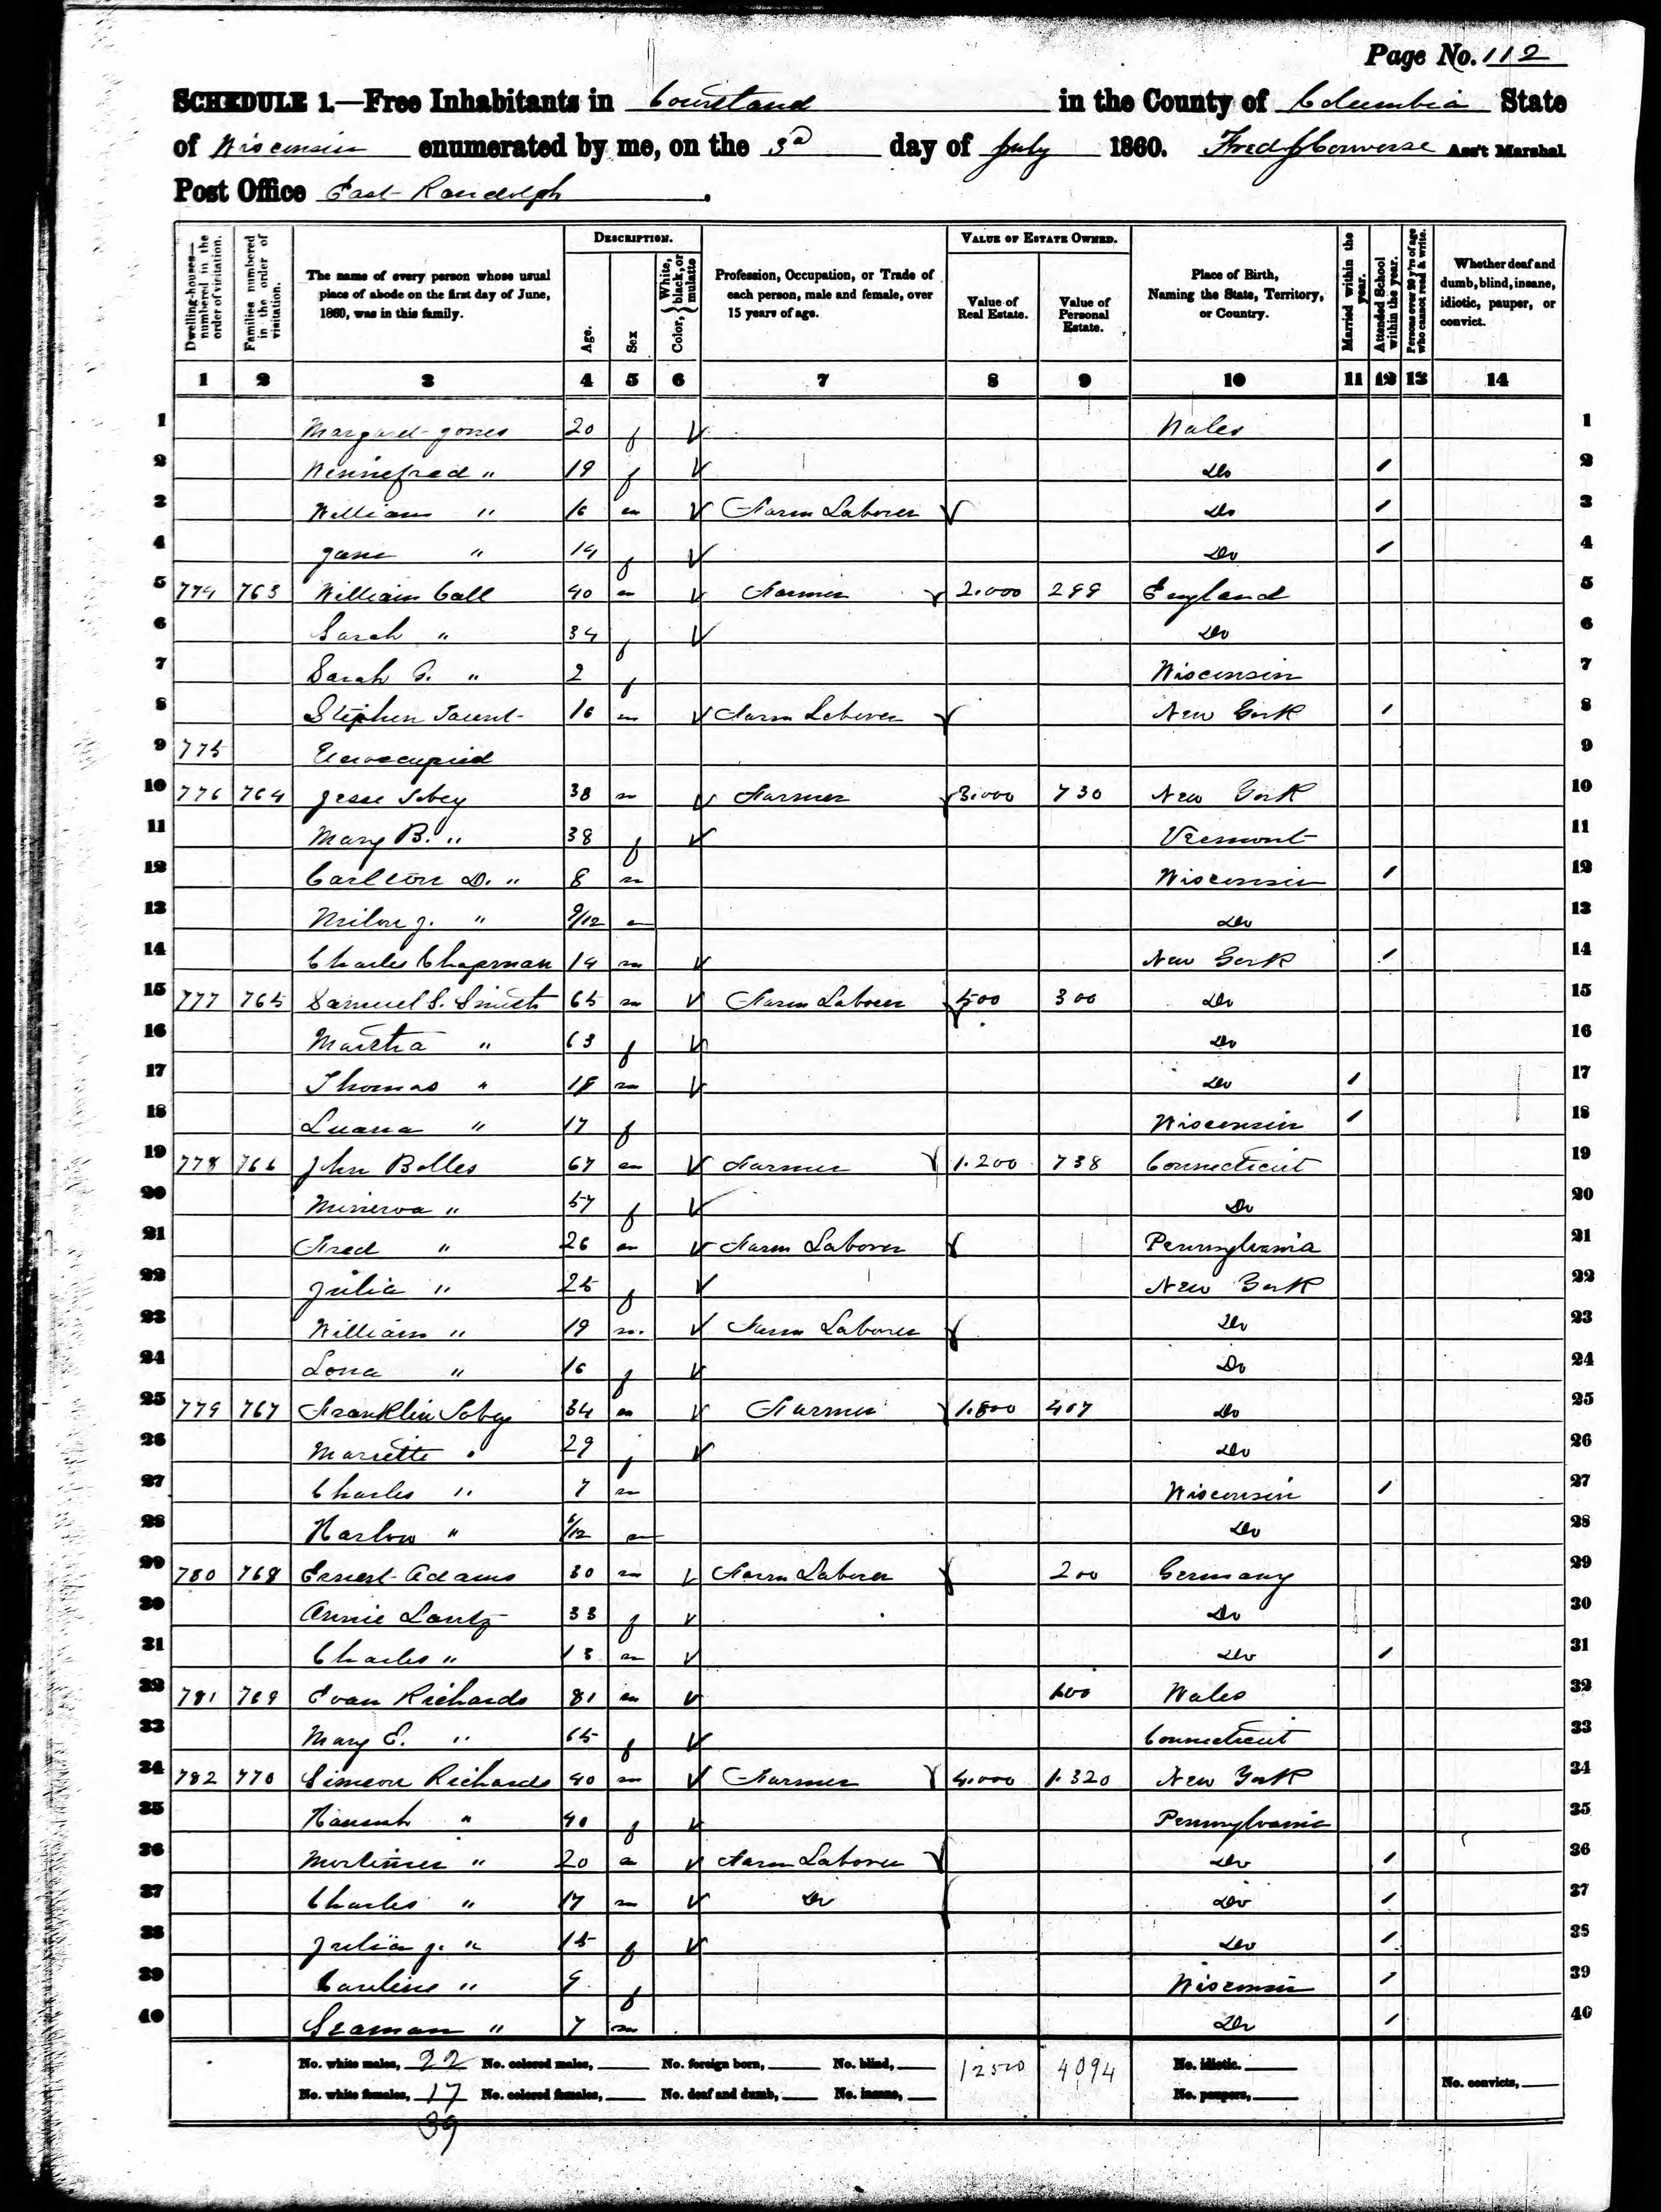 Page No. 112
SCHEDULE 1.—Free Inhabitants in Courtland in the County of Columbia State
of Wisconsin enumerated by me, on the 3d day of July 1860. Fred J Converse Ass't Marshal.
Post Office East Randolph.
Dwelling-houses—numbered in the order of visitation. Families numbered in the order of visitation. The name of every person whose usual place of abode on the first day of June, 1860, was in this family. DESCRIPTION. Age. Sex Color, White, black, or mulatto Profession, Occupation, or Trade of each person, male and female, over 15 years of age. VALUE OF ESTATE OWNED. Value of Real Estate. Value of Personal Estate. Place of Birth, Naming the State, Territory, or Country. Married within the year. Attended School within the year. Persons over 20 y'rs of age who cannot read & write. Whether deaf and dumb, blind, insane, idiotic, pauper, or convict.
1 2 3 4 5 6 7 8 9 10 11 12 13 14
1 Margaret Jones 20 f Wales 1
2 Winnefred " 19 f Do / 2
3 William " 16 m Farm Laborer Do / 3
4 Jane " 14 f Do / 4
5 774 763 William Call 40 m Farmer 2.000 299 England 5
6 Sarah " 34 f Do 6
7 Sarah " 2 f Wisconsin 7
8 Stephen 16 m Farm Laborer New York / 8
9 775 Unoccupied 9
10 776 764 Jesse Tobey 38 m Farmer 3.000 730 New York 10
11 Mary B. " 38 f Vermont 11
12 Carlton D. " 8 m Wisconsin / 12
13 Milon J. " 9/12 m Do 13
14 Charles Chapman 14 m New York / 14
15 777 765 Samuel S. Smith 65 m Farm Laborer 500 300 Do 15
16 Martha " 63 f Do 16
17 Thomas " 18 m Do / 17
18 Luana " 17 f Wisconsin / 18
19 778 766 John Bolles 67 m Farmer 1.200 738 Connecticut 19
20 Minerva " 57 f Do 20
21 Fred " 26 m Farm Laborer Pennsylvania 21
22 Julia " 25 f New York 22
23 William " 19 m. Farm Laborer Do 23
24 Lona " 16 f Do 24
25 779 767 Franklin Tobey 34 m Farmer 1.800 407 Do 25
26 Mariette " 29 f Do 26
27 Charles " 7 m Wisconsin / 27
28 Harlow " /12 m Do 28
29 780 768 Ernest Adams 30 m Farm Laborer 200 Germany 29
30 Annie Lantz 33 f Do 30
31 Charles " 13 m Do / 31
32 781 769 Evan Richards 81 m Wales 32
33 Mary E. " 65 f Connecticut 33
34 782 770 Simeon Richards 40 m Farmer 4.000 1.320 New York 34
35 Hannah " 40 f Pennsylvania 35
36 Mortimer " 20 m Farm Laborer Do / 36
37 Charles " 17 m Do Do / 37
38 Julia J. " 15 f Do / 38
39 Caroline " 9 f Wisconsin / 39
40 Seaman " 7 m Do / 40
No. white males, 22 No. colored males, No. foreign born, No. blind, 12500 4094 No. idiotic.
No. white females, 17 No. colored females, No. deaf and dumb, No. insane, No. paupers, No. convicts,
39